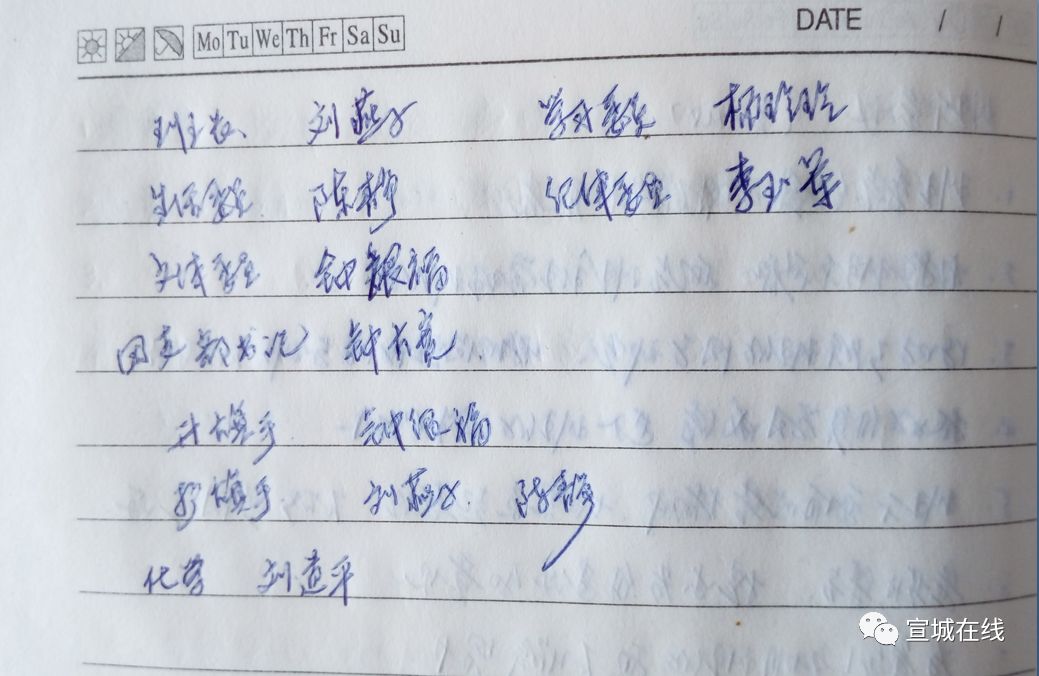 Mo Tu We Th Fr Sa Su DATE / /
刘燕子 学习委员 杨玲玲
生活委员 陈静 纪律委员 李玉萍
文体委员 钟银福
钟长宽
升旗手 钟银福
护旗手 刘燕子 陈静
化学 刘道平
宣城在线